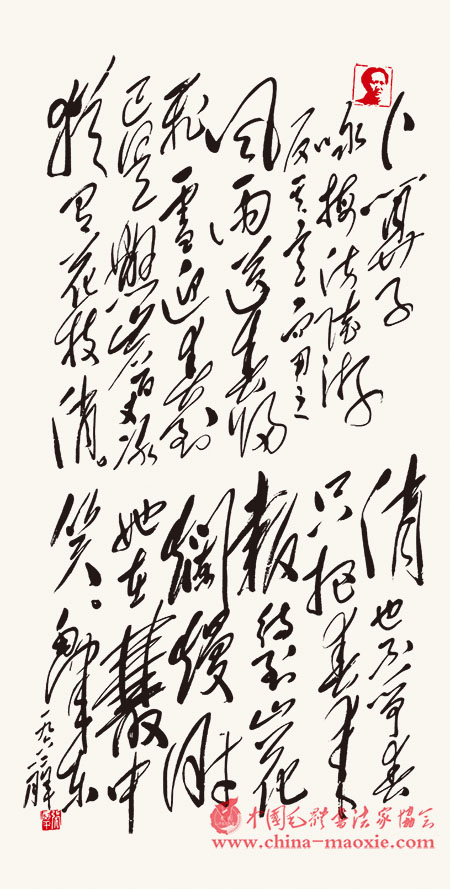 卜算子
咏梅 法陆游
反其意而用之
风雨送春归
飞雪迎春到
已是悬崖百丈冰
犹有花枝俏。
俏也不争春
只把春来
报待到山花
烂熳时
她在叢中
笑。
中國毛體书法家協会
www.china-maoxie.com